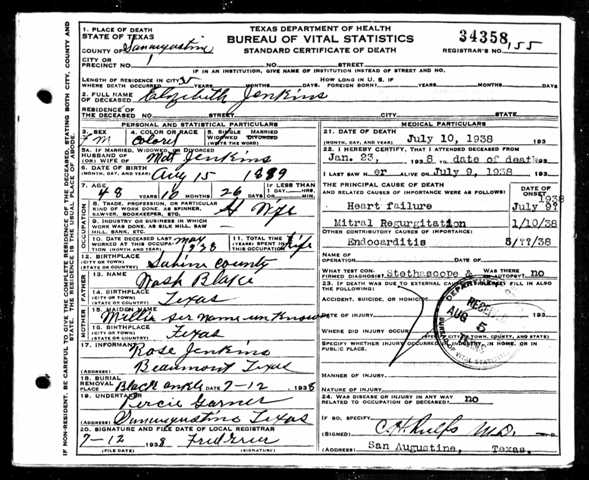 1. PLACE OF DEATH
STATE OF TEXAS
COUNTY OF San augustine
CITY OR PRECINCT NO. 1
TEXAS DEPARTMENT OF HEALTH
BUREAU OF VITAL STATISTICS
STANDARD CERTIFICATE OF DEATH
34358
REGISTRAR'S NO. 155
NO. STREET
IF IN AN INSTITUTION, GIVE NAME OF INSTITUTION INSTEAD OF STREET AND NO.
LENGTH OF RESIDENCE IN CITY WHERE DEATH OCCURRED YEARS MONTHS DAYS HOW LONG IN U. S. IF FOREIGN BORN? YEARS MONTHS DAYS
2. FULL NAME OF DECEASED Elizibeth Jenkins
RESIDENCE OF THE DECEASED NO. STREET CITY STATE
PERSONAL AND STATISTICAL PARTICULARS
3. SEX Fm
4. COLOR OR RACE Colory
5. SINGLE MARRIED WIDOWED DIVORCED (WRITE THE WORD)
5A. IF MARRIED, WIDOWED, OR DIVORCED
HUSBAND OF (OR) WIFE OF Matt Jenkins
6. DATE OF BIRTH (MONTH, DAY, AND YEAR) Aug 15 1889
7. AGE YEARS 48 MONTHS 10 DAYS 26 IF LESS THAN 1 DAY, HRS. MIN.
8. TRADE, PROFESSION, OR PARTICULAR KIND OF WORK DONE, AS SPINNER, SAWYER, BOOKKEEPER, ETC. H Wife
9. INDUSTRY OR BUSINESS IN WHICH WORK WAS DONE, AS SILK MILL, SAW MILL, BANK, ETC.
10. DATE DECEASED LAST WORKED AT THIS OCCUPATION (MONTH AND YEAR) may 1938
11. TOTAL TIME (YEARS) SPENT IN THIS OCCUPATION life
12. BIRTHPLACE (CITY OR TOWN) (STATE OR COUNTRY) Sabine County
13. NAME Wash Blake
14. BIRTHPLACE (CITY OR TOWN) (STATE OR COUNTRY) Texas
15. MAIDEN NAME Millie ser name unKnow
16. BIRTHPLACE (CITY OR TOWN) (STATE OR COUNTRY) Texas
17. INFORMANT Rose Jenkins
(ADDRESS) Beaumont Texas
18. BURIAL REMOVAL PLACE Black ankle DATE 7-12 1938
19. UNDERTAKER Percie Garner
(ADDRESS) Sanaugustine Texas
20. SIGNATURE AND FILE DATE OF LOCAL REGISTRAR
7-12 1938
FILE DATE SIGNATURE
MEDICAL PARTICULARS
21. DATE OF DEATH (MONTH, DAY, AND YEAR) July 10, 1938 193
22. I HEREBY CERTIFY, THAT I ATTENDED DECEASED FROM
Jan. 23, 1938, to date of death 193
I LAST SAW H er ALIVE ON July 9, 1938 193
THE PRINCIPAL CAUSE OF DEATH AND RELATED CAUSES OF IMPORTANCE WERE AS FOLLOWS:
DATE OF ONSET 1938
Heart failure July 9?
Mitral Regurgitation 1/10/38
OTHER CONTRIBUTORY CAUSES OF IMPORTANCE:
Endocarditis 5/??/38
NAME OF OPERATION
WHAT TEST CONFIRMED DIAGNOSIS? Stethascope & WAS THERE AN AUTOPSY? no
23. IF DEATH WAS DUE TO EXTERNAL CAUSES, FILL IN ALSO THE FOLLOWING:
ACCIDENT, SUICIDE, OR HOMICIDE?
DATE OF INJURY 193
WHERE DID INJURY OCCUR? (CITY OR TOWN, COUNTY, AND STATE)
SPECIFY WHETHER INJURY OCCURRED IN INDUSTRY, IN HOME, OR IN PUBLIC PLACE.
MANNER OF INJURY
NATURE OF INJURY
24. WAS DISEASE OR INJURY IN ANY WAY RELATED TO OCCUPATION OF DECEASED? no
IF SO, SPECIFY
(SIGNED) M.D.
(ADDRESS) San Augustine, Texas.
RECEIVED AUG 5
BUREAU OF VITAL STATISTICS